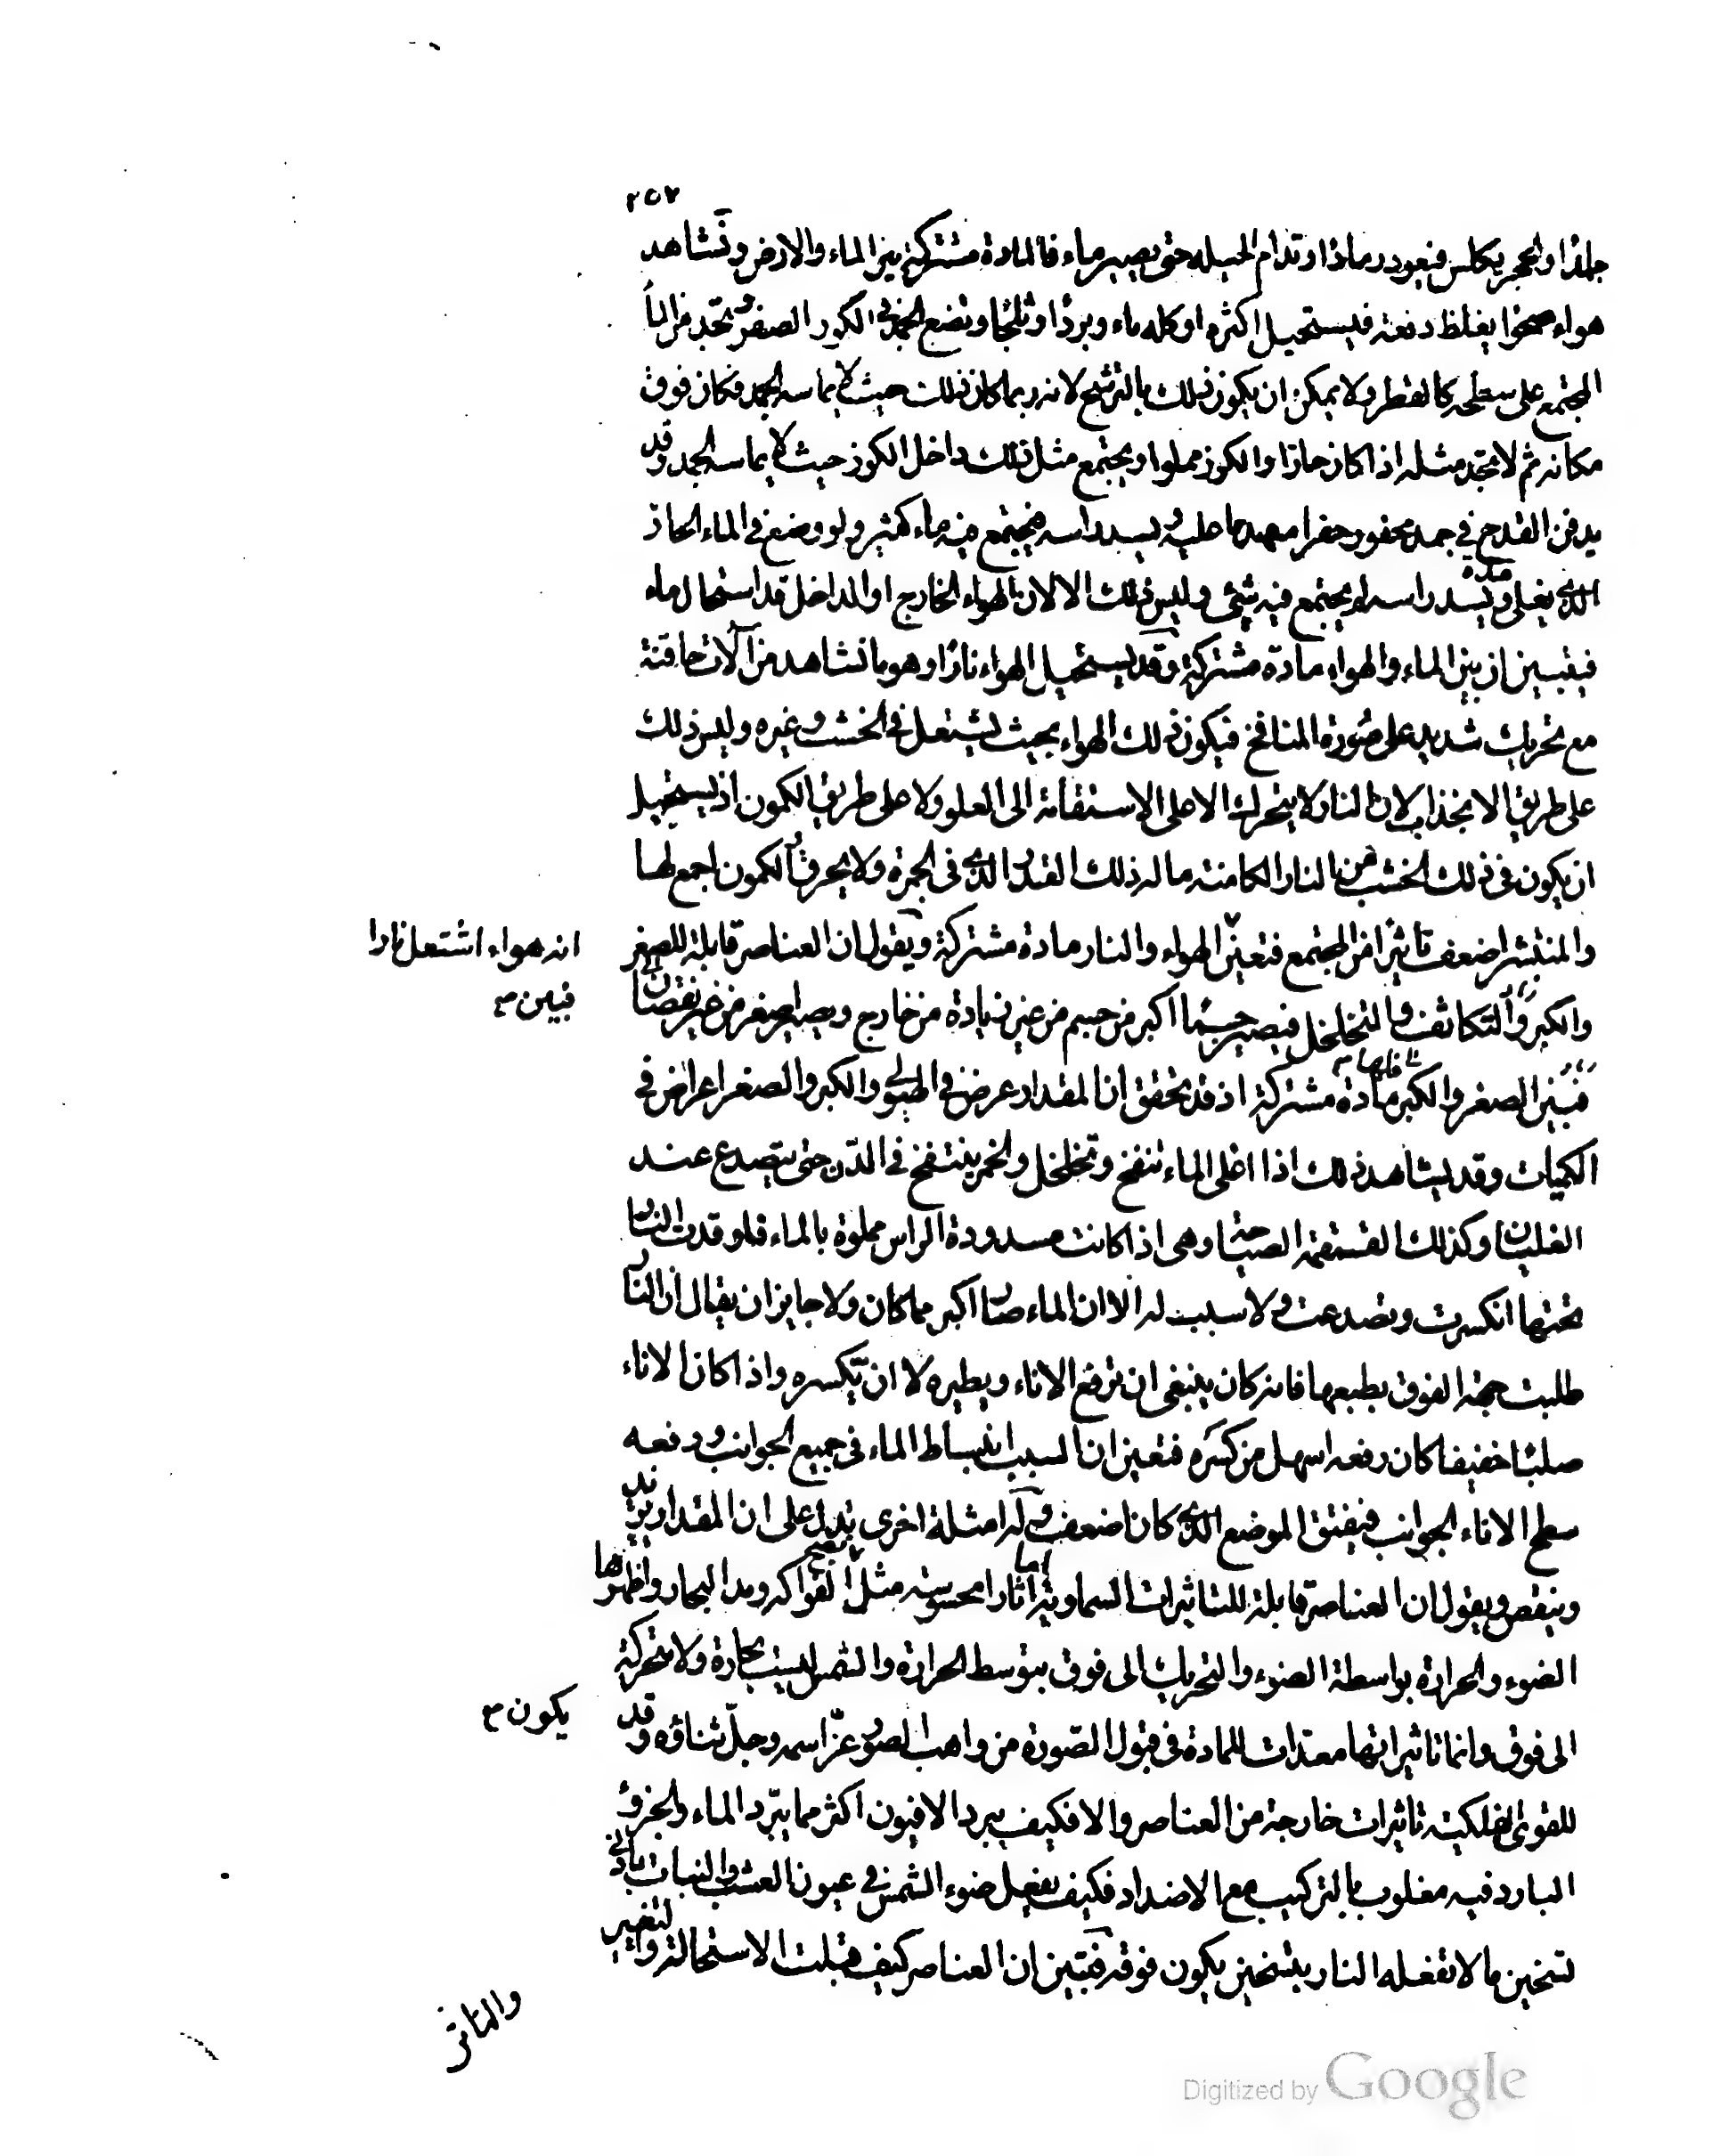 ٢٥٧
جلمدا والحجر يكلس فيعود رمادا وتدام الحيلة حتى يصير ماء فالمادة مشتركة بين الماء والارض ونشاهد
هواء صحوا يغلظ دفعة فيستحيل اكثره او كله ماء وبردا وثلجا وتضع الجمد فى الكوز الصفر وتجد من الماء
المجتمع على سطحه كالقطر ولا يمكن ان يكون ذلك بالترشح لانه ربما كان ذلك حيث لا يماسه الجمد وكان فوق
مكانه ثم لا تجد مثله اذا كان حارا والكوز مملوا ويجتمع مثل ذلك داخل الكوز حيث لا يماسه الجمد وقد
يدفن القدح فى جمد محفور حفرا مهندما عليه ويسد راسه فيجتمع فيه ماء كثير ولو وضع فى الماء الحار
الذى يغلى مدة ويسد راسه لم يجتمع فيه شئ وليس ذلك الا لان الهواء الخارج او الداخل قد استحال ماء
فيتبين ان بين الماء والهواء مادة مشتركة وقد يستحيل الهواء نارا وهو ما نشاهد من آلات حاقنة
مع تحريك شديد على صورة المنافخ فيكون ذلك الهواء بحيث يشتعل فى الخشب وغيره وليس ذلك
على طريق الانجذاب لان النار لا يتحرك الا على الاستقامة الى العلو ولا على طريق الكمون اذ يستحيل
ان يكون فى ذلك الخشب من النار الكامنة ما له ذلك القدر الذى فى الجمرة ولا يحرق والكمون اجمع لها
والمنتشر اضعف تاثيرا من المجتمع فتعين انه هواء اشتعل نارا
فبين الهواء والنار مادة مشتركة ويقول ان العناصر قابلة للصغر
والكبر والتكاثف والتخلخل فيصير جسما اكبر من جسم من غير زيادة من خارج ويصير اصغر من غير نقصان
فبين الصغر والكبر مادة مشتركة اذ قد تحقق ان المقدار عرض فى الهيولى والكبر والصغر اعراض فى
الكميات وقد يشاهد ذلك اذا اغلى الماء ينتفخ وتخلخل والخمر ينتفخ فى الدن حتى يتصدع عند
الغليان وكذلك القمقمة الصياحة وهى اذا كانت مسدودة الراس مملوة بالماء فاوقدت النار
تحتها انكسرت وتصدعت ولا سبب له الا ان الماء صار اكبر مما كان ولا جايز ان يقال ان النار
طلبت جهة الفوق بطبعها فانه كان ينبغى ان ترفع الاناء ويطيره لا ان يكسره واذا كان الاناء
صلبا خفيفا كان رفعه اسهل من كسره فتعين ان السبب انبساط الماء فى جميع الجوانب ودفعه
سطح الاناء الجوانب فيفتق الموضع الذى كان اضعف وله امثلة اخرى تدل على ان المقدار يزيد
وينقص ويقول ان العناصر قابلة للتاثيرات السماوية اما آثارا محسوسة مثل نضج الفواكه ومد البحار واظهرها
الضوء والحرارة بواسطة الضوء والتحريك الى فوق بتوسط الحرارة والشمس ليست بحارة ولا متحركة
الى فوق وانما تاثيراتها معدات للمادة فى قبول الصورة من واهب الصور عز اسمه وجل ثناؤه وقد يكون
للقوى الفلكية تاثيرات خارجة من العناصر والا فكيف يبرد الافيون اكثر مما يبرد الماء والجزؤ
البارد فيه مغلوب بالتركيب مع الاضداد فكيف يفعل ضوء الشمس فى عيون العشب والنبات بادنى
تسخين ما لا تفعله النار بتسخين يكون فوقه فتبين ان العناصر كيف قبلت الاستحالة والتغير
والتاثر
Digitized by Google